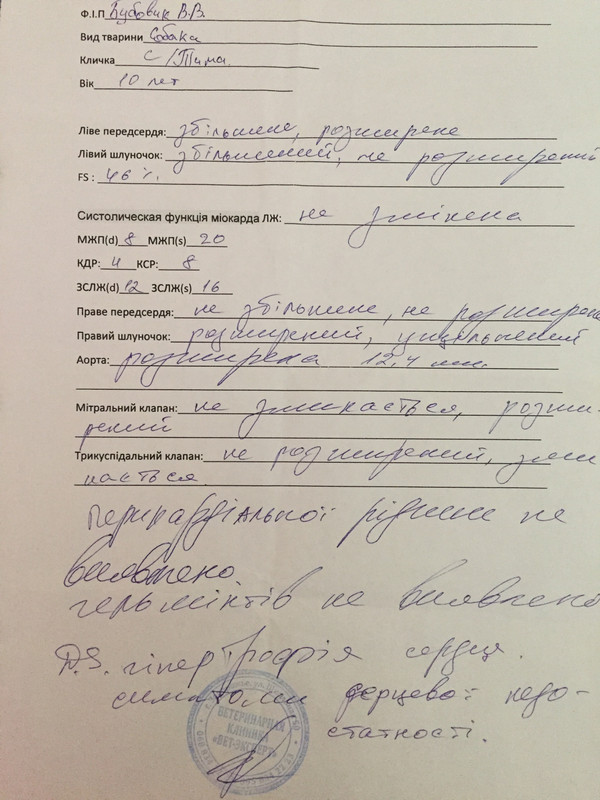 Ф.І.П Бубовик В.В.
Вид тварини Собака
Кличка С/Тима.
Вік 10 лет
Ліве передсердя: збільшене, розширене
Лівий шлуночок: збільшений, не розширений
FS : 46 %.
Систолическая функція міокарда ЛЖ: не змінена
МЖП(d) 8 МЖП(s) 20
КДР: 4 КСР: 8
ЗСЛЖ(d) 12 ЗСЛЖ(s) 16
Праве передсердя: не збільшене, не розширене
Правий шлуночок: розширений,
Аорта: розширена 12,4 мм.
Мітральний клапан: не змикається, розши-
рений
Трикуспідальний клапан: не розширений, зми
кається
Перикардіальної рідини не
виявлено.
гельмінтів не виявлено
D.S. гіпертрофія серця.
симптоми серцевої недо-
статності.
ВЕТЕРИНАРНАЯ
КЛИНИКА
«ВЕТ-ЭКСПЕРТ»